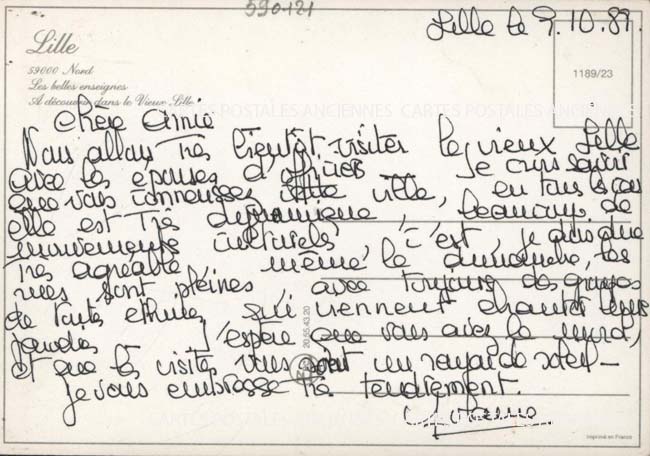 590121
Lille le 9.10.89.
Lille
59000 Nord
Les belles enseignes
A découvrir dans le Vieux Lille
1189/23
CARTES POSTALES ANCIENNES CARTES POSTALES
Chère Annie
Nous allons très bientôt visiter le vieux Lille
avec les épouses d'officiers Je crois savoir
que vous connaissez cette ville, en tous les cas
elle est très dynamique, beaucoup de
mouvements culturels, c'est, je dois dire
très agréable même le dimanche, les
rues sont pleines avec toujours des groupes
de toutes ethnies qui viennent chanter leurs
J'espère que vous avez le moral,
et que les visites vous sont un rayon de soleil –
je vous embrasse très tendrement.
20.55.43.20
Imprimé en France